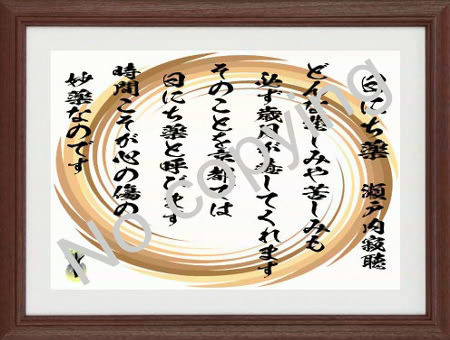 日にち薬 瀬戸内寂聴
どんな悲しみや苦しみも
必ず歳月が癒してくれます
そのことを京都では
日にち薬と呼びます
時間こそが心の傷の
妙薬なのです
No copying